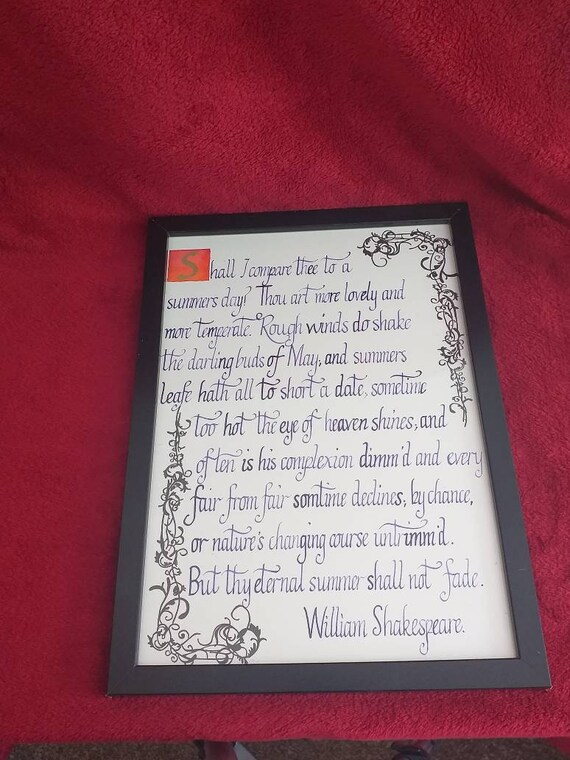 Shall I compare thee to a
summers day? Thou art more lovely and
more temperate. Rough winds do shake
the darling buds of May, and summers
leafe hath all to short a date, sometime
too hot the eye of heaven shines, and
often is his complexion dimm'd and every
fair from fair somtime declines, by chance,
or nature's changing course untrimm'd.
But thy eternal summer shall not fade.
William Shakespeare.